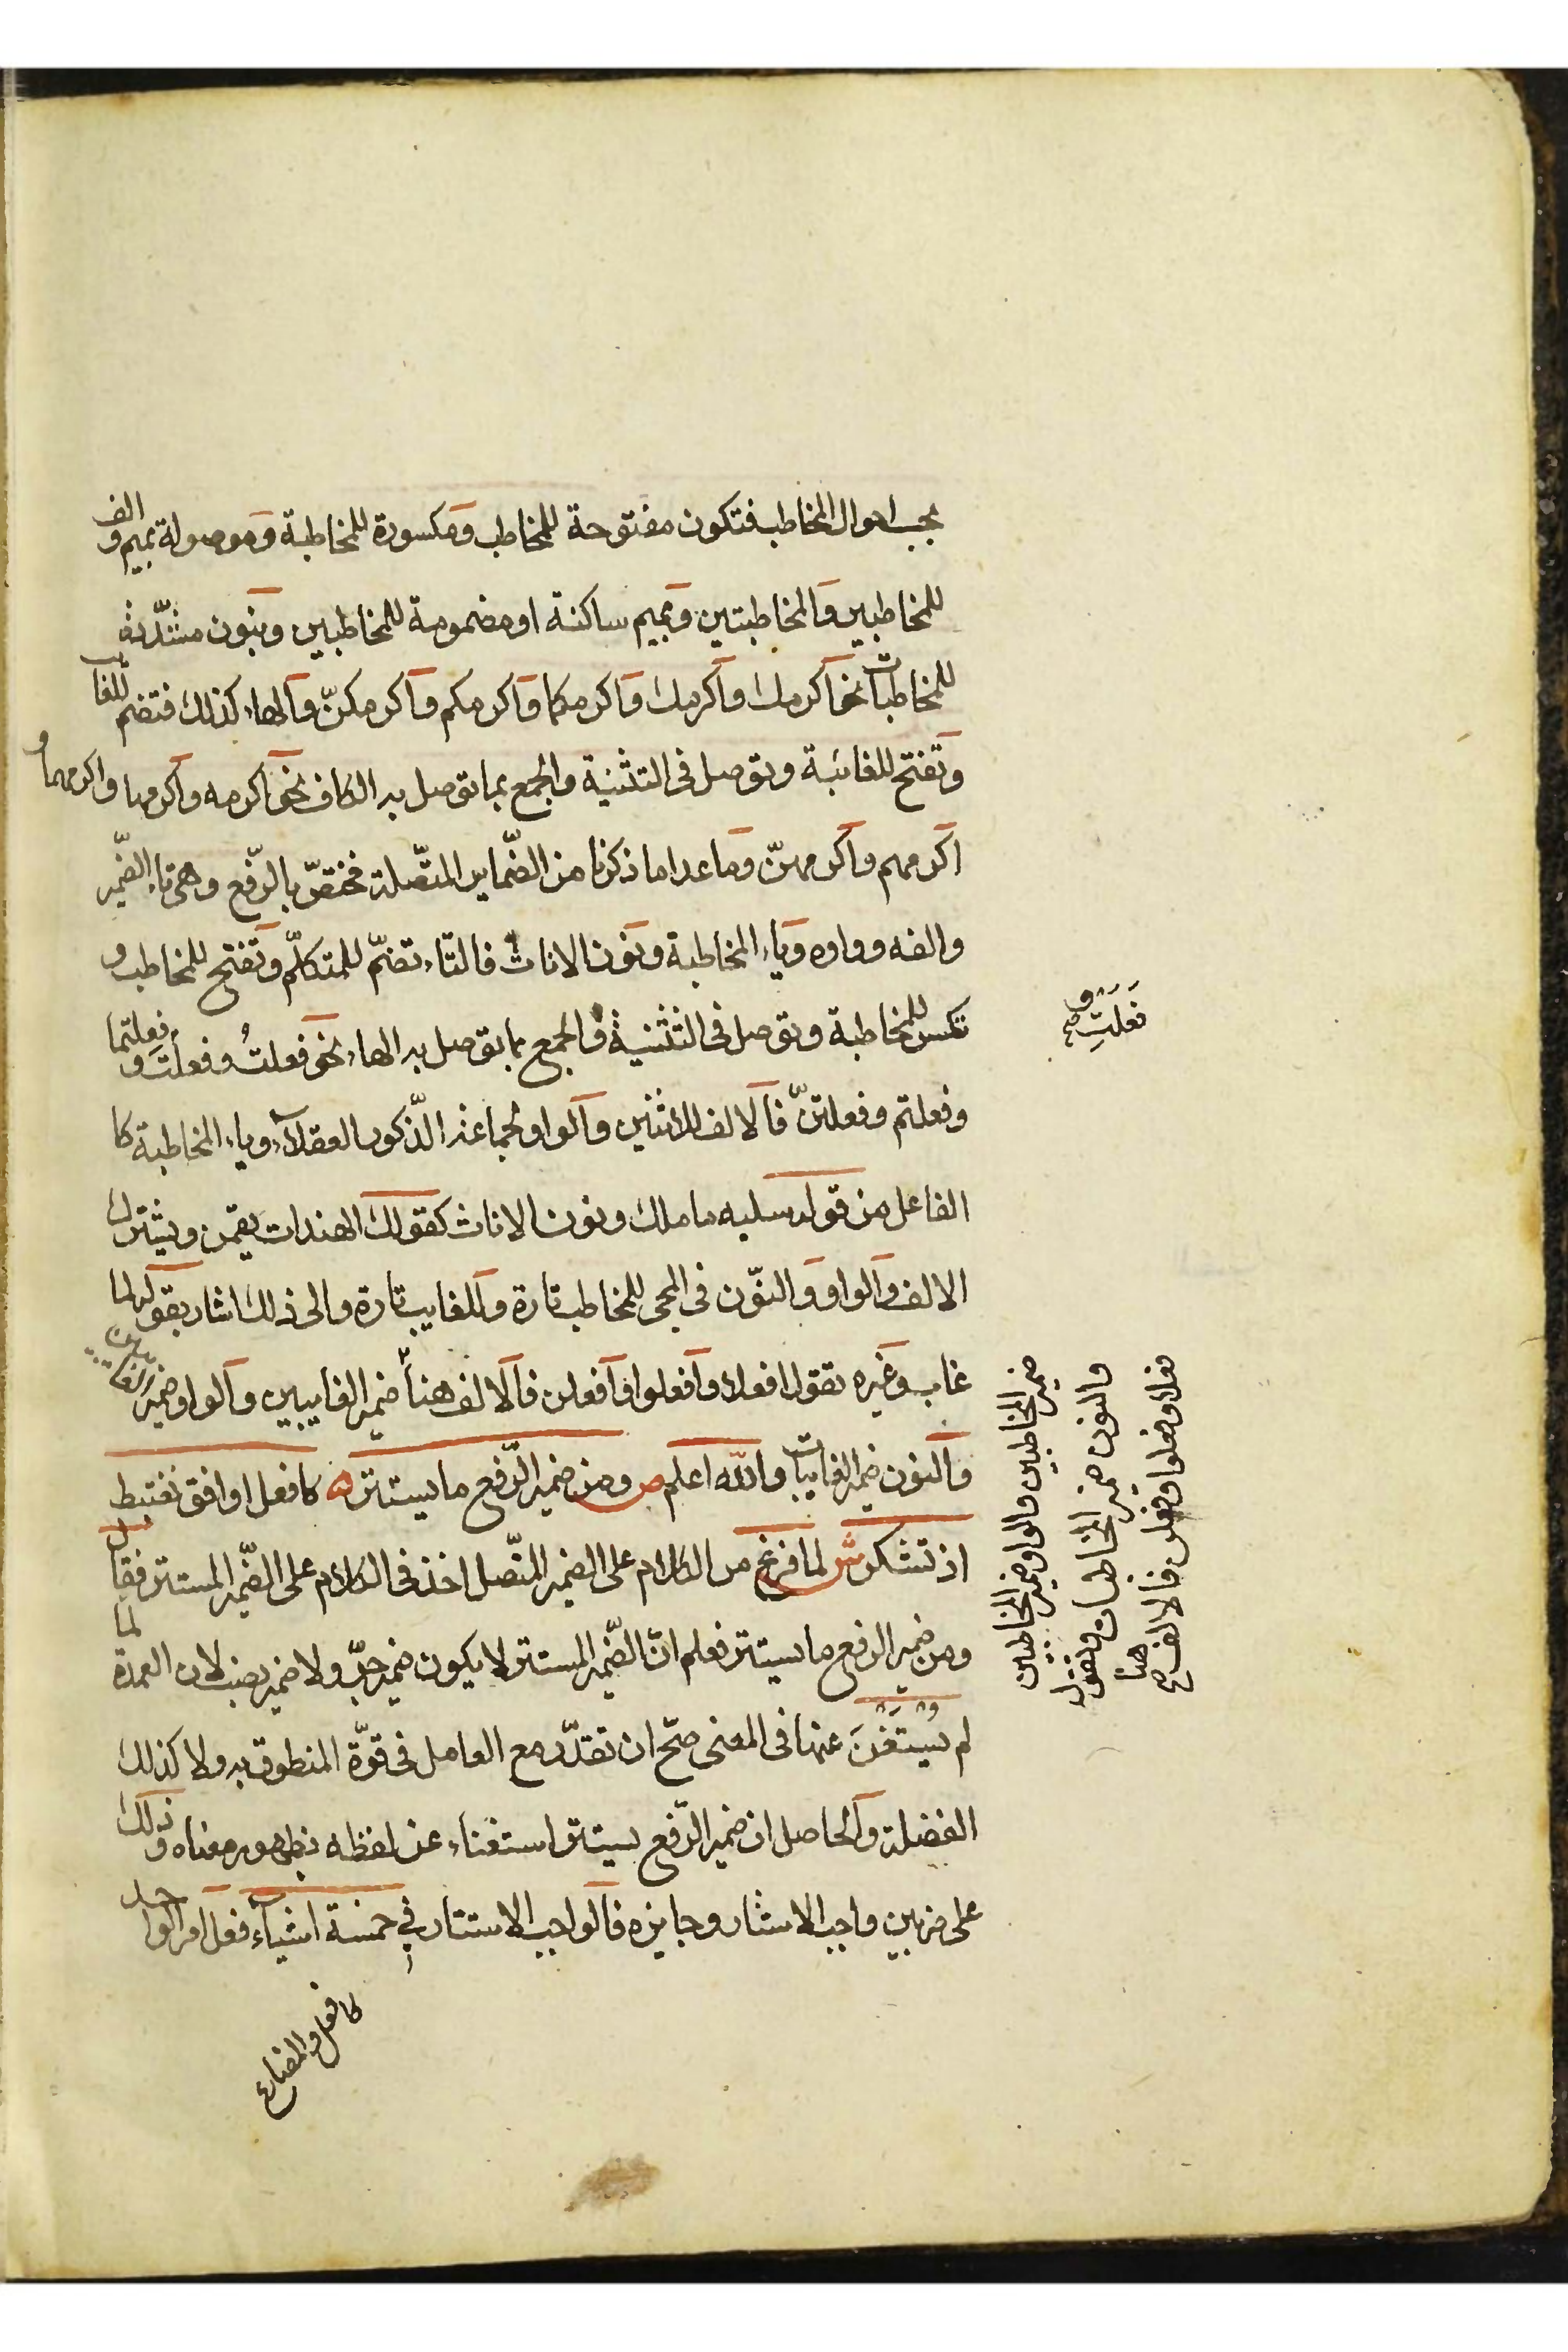 بحسب احوال المخاطب فتكون مفتوحة للمخاطب ومكسورة للمخاطبة وموصولة بميم والف
للمخاطبين والمخاطبتين وبميم ساكنة او مضمومة للمخاطبين وبنون مشدّدة
للمخاطبات نحو اكرمك واكرمك واكرمكما واكرمكم واكرمكنّ والهاء كذلك فتضم للغايب
وتفتح للغائبة وتوصل فى التثنية والجمع بما توصل به الكاف نحو اكرمه واكرمها واكرمهما و
اكرمهم واكرمهنّ وما عدا ما ذكرنا من الضّماير المتّصلة فمختصّ بالرّفع وهى تاء الضّمير
والفه وواوه وياء المخاطبة ونون الاناث فالتّاء تضمّ للمتكلّم وتفتح للمخاطب و
تكسر للمخاطبة وتوصل فى التثنية والجمع بما توصل به الهاء نحو فعلتُ وفعلتَ وفعلتما
وفعلتم وفعلتنّ فالالف للاثنين والواو لجماعة الذّكور العقلاء وياء المخاطبة كا
الفاعل من قوله سليه ما ملك ونون الاناث كقولك الهندات يقمن ويشترك
الالف والواو والنّون فى المجى للمخاطب تارة وللغايب تارة والى ذلك اشار بقوله لما
غاب وغيره تقول افعلا وافعلوا وافعلن فالالف هنا ضمير الغايبين والواو ضمير الغايبين
والنون ضمير الغايبات والله اعلم ص ومن ضمير الرّفع ما يستتر ه كافعل اوافق نغتبط
اذ تشكر ش لما فرغ من الكلام على الضمير المتّصل اخذ فى الكلام على الضّمير المستتر فقال
ومن ضمير الرفع ما يستتر فعلم انّ الضّمير المستتر لا يكون ضمير جرّ ولا ضمير نصب لان العمدة لما
لم يُستَغْنَ عنها فى المعنى صحّ ان تقدّر مع العامل فى قوّة المنطوق به ولا كذلك
الفضلة والحاصل ان ضمير الرّفع يستتر استغناء عن لفظه بظهور معناه وذلك
على ضربين واجب الاستتار وجايزه فالواجب الاستتار فى خمسة اشياء فعل امر الواحد
كافعل والمضارع
وفعلتِ صح
ضمير المخاطبين والواو ضمير المخاطبين
والنون ضمير المخاطبات وتقول
فعلا وفعلوا وفعلن فالالف هنا صح